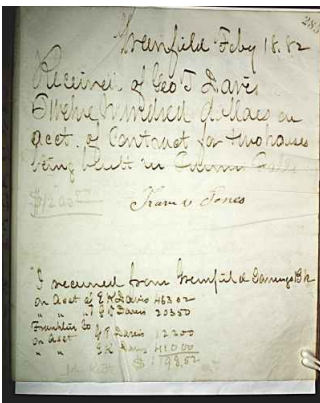 283
Greenfield Feby 18. 82
Received of Geo T Davis
Twelve hundred dollars on
acct. of Contract for two houses
being built in
$1200
Jones
I received from Greenfield Savings Bk
on acct of E K Davis 463 02
" " " Davis 203 50
Franklin Co
on acct Davis 122 00
" " Davis 410 00
$